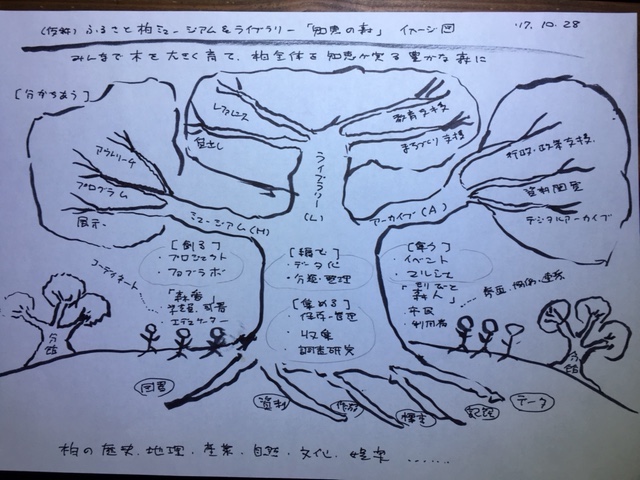 (仮称) ふるさと柏ミュージアム&ライブラリー「知恵の森」 イメージ図 '17.10.28
みんなで木を大きく育て、柏全体を知恵が実る豊かな森に
[分かちあう]
アウトリーチ
プログラム
展示
ミュージアム(M)
レファレンス
貸出し
ライブラリー(L)
教育支援
まちづくり支援
アーカイブ(A)
行政・政策支援
資料閲覧
デジタルアーカイブ
[創る]
・プロジェクト
・プロブラボ
[編む]
・データ化
・分類・整理
[集う]
・イベント
・マルシェ
コーディネート
「森番」
エデュケーター
[集める]
・保存・管理
・収集
調査研究
「もりびと
森人」
・市民
・利用者
分館
分館
図書
資料
作品
標本
記録
データ
柏の歴史、地理、産業、自然、文化、